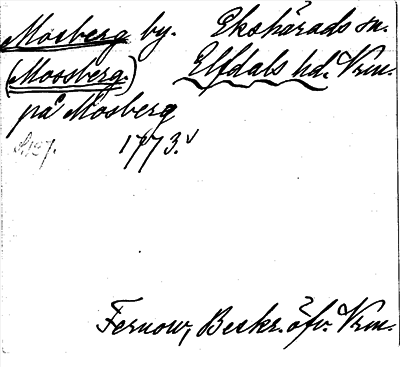 Mosberg by. Ekshärads sn.
(Mossberg.) Elfdals hd. Vrm.
på Mosberg
1773.
Fernow, Beskr. öfv. Vrm.